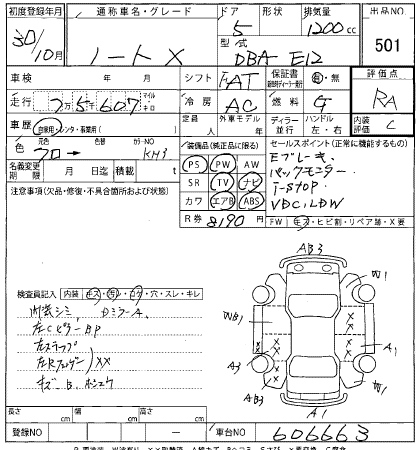 初度登録年月 通称車名・グレード ドア 形状 排気量 出品NO
30/10月 ノート X 5 1200cc 501
型式 DBA E12
車検 年 月 シフト FAT 保証書 有・無 評価点
走行 7万5千607 マイル キロ 冷房 AC 燃料 G RA
車歴 自家用・レンタ・事業用( ) 定員 人 外車モデル 年 ディーラー 並行 ハンドル 左・右 内装評価 C
色 元色 クロ → 色替 カラーNO KH3 装備品(純正品に限る) セールスポイント(正常に機能するもの)
PS PW AW Eブレーキ、
名義変更期限 月 日迄 積載 t SR TV ナビ バックモニター
注意事項(欠品・修復・不具合箇所および状態) カワ エアB ABS i-STOP
VDC, LDW
R券 8190円 FW モズ・ヒビ割・リペア跡・X要
AB3
W1
検査員記入 内装 モス・汚レ・コゲ・穴・スレ・キレ
内装シミ、Dミラー A、
左Cピラー BP
左ステップ
左Rフェンダー XX
WB1
A1
A3
AB3
W1
A1
長さ cm 幅 cm 高さ cm
登録NO 車台NO 606663